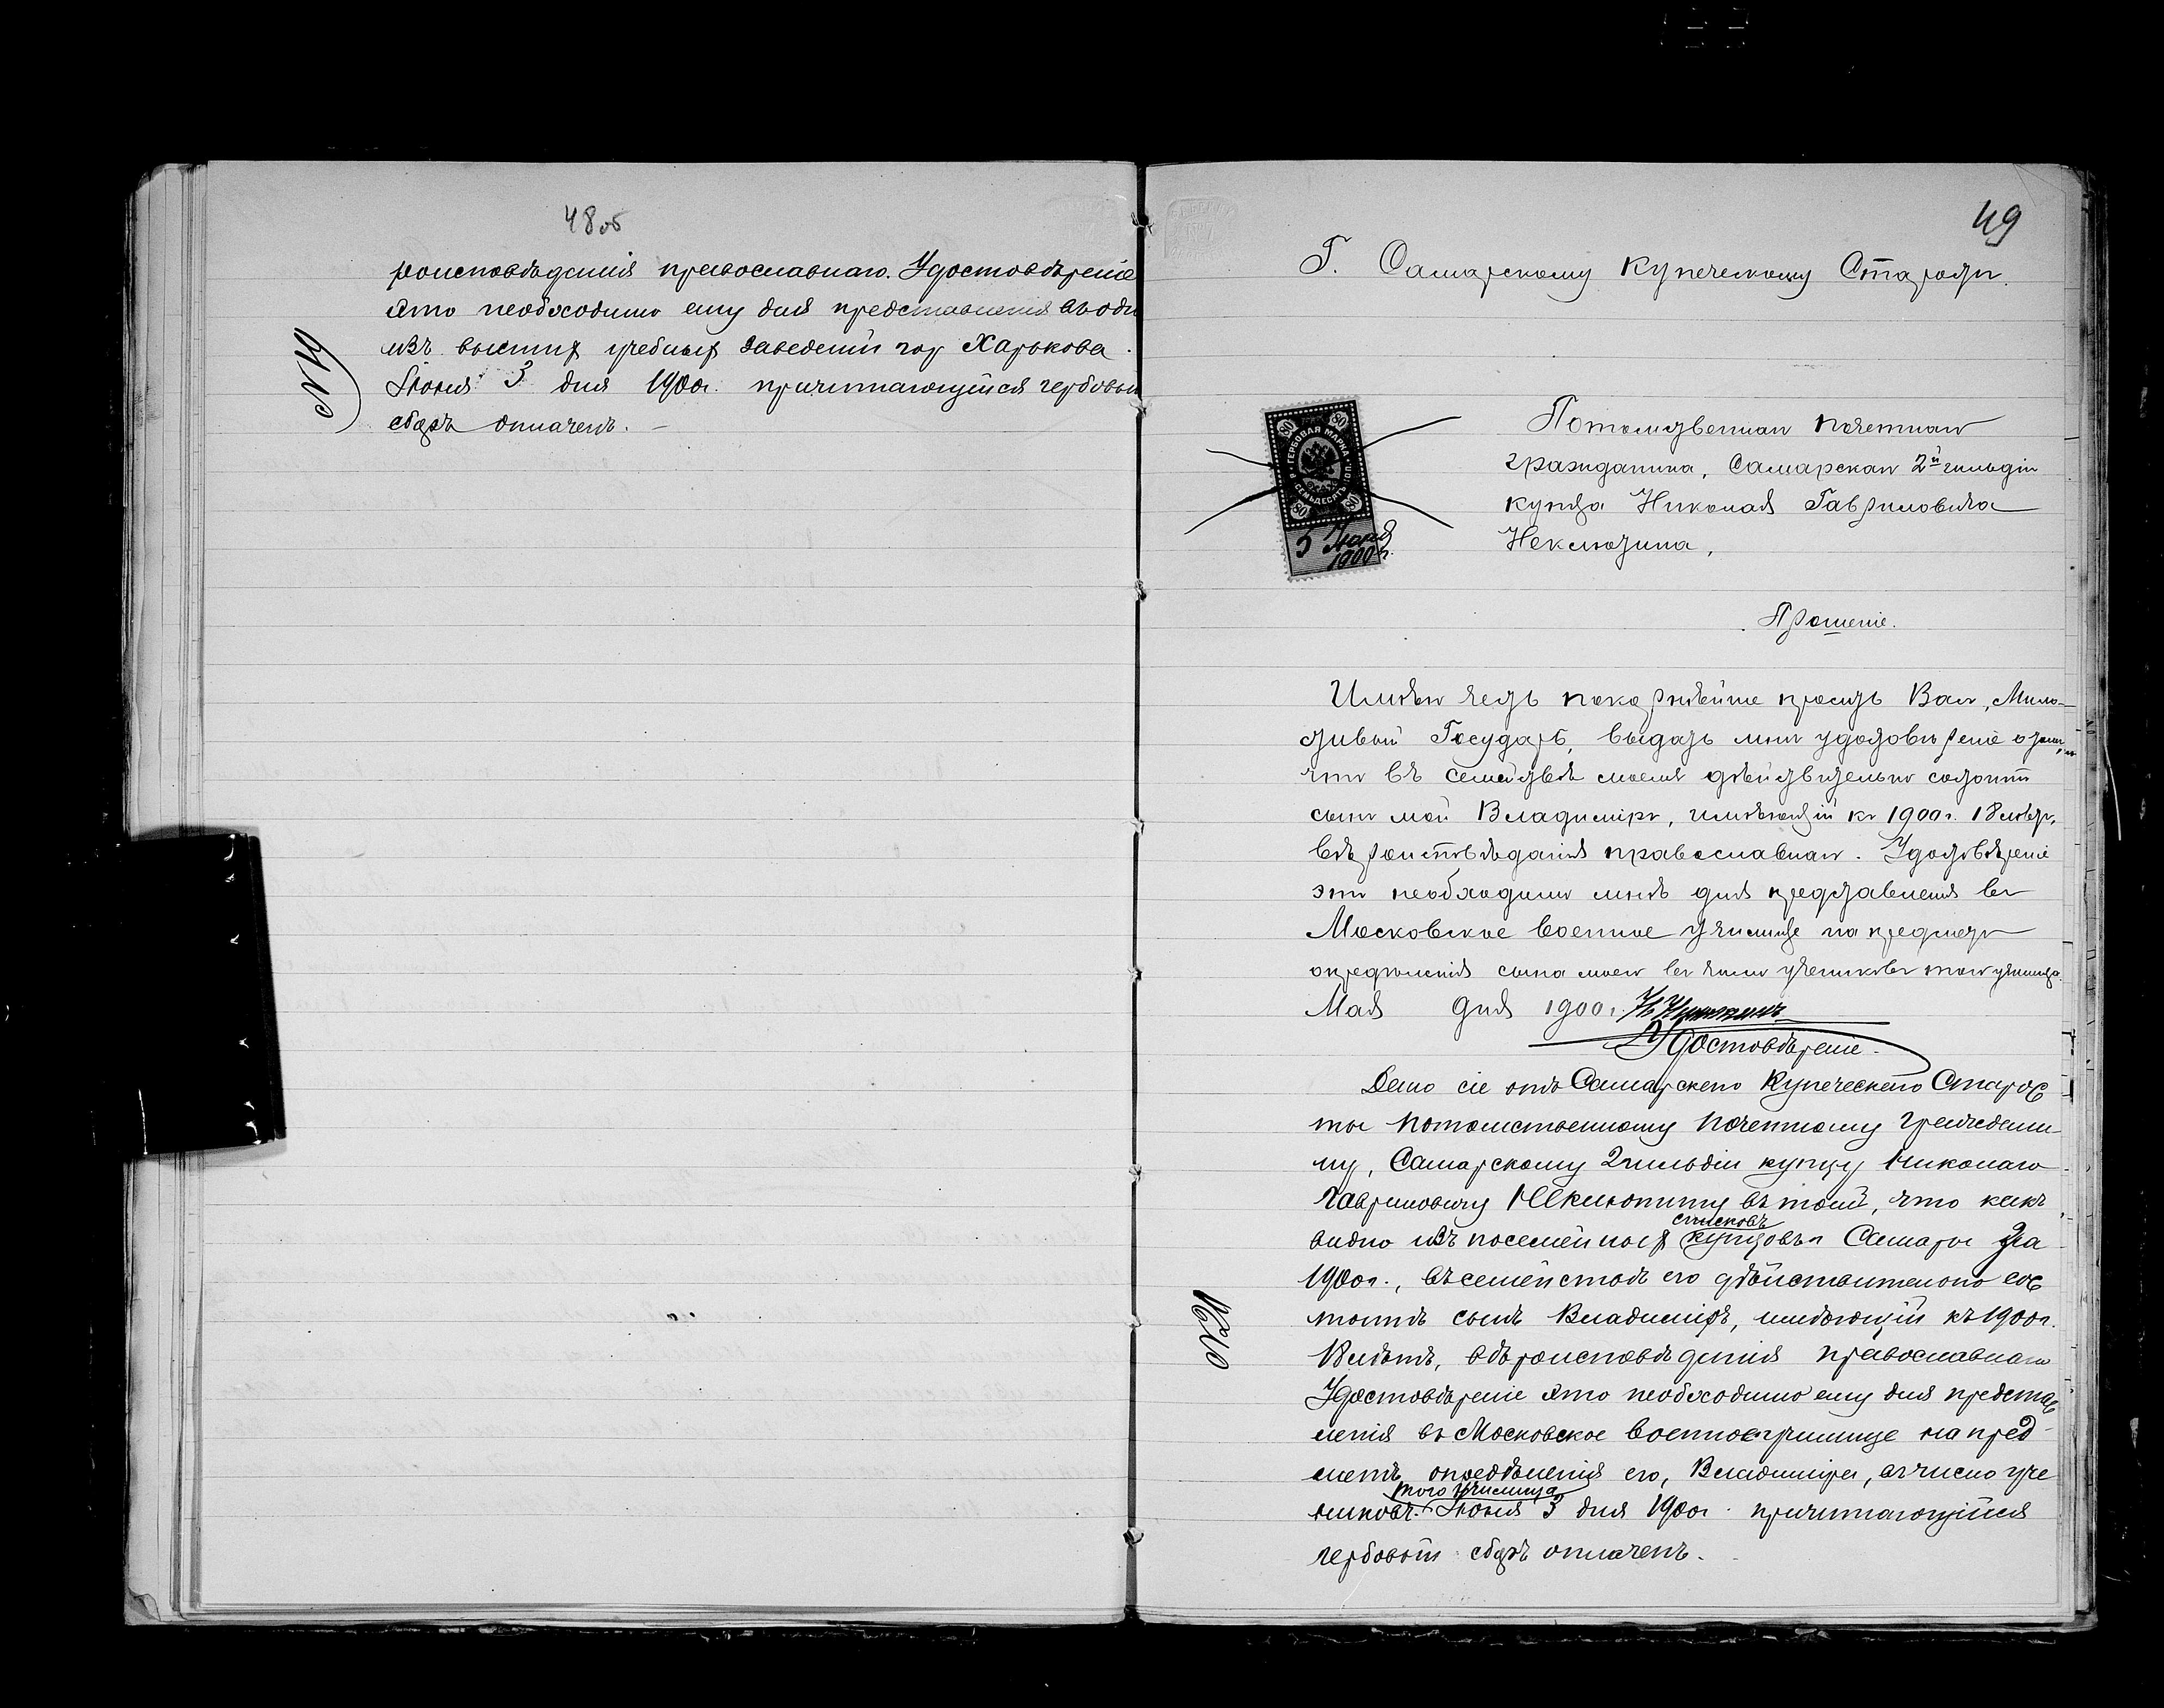 48об
роисповѣданія православнаго. Удостовѣреніе
это необходимо ему для представленія въ одн
изъ высших учебных заведеній гор Харькова.
№ 19
Іюня 3 дня 1900г. причитающійся гербовый
сборъ оплаченъ. –
49
Г. Самарскому Купеческому Старостѣ.
80 80
ГЕРБОВАЯ МАРКА
СЕМЬДЕСЯТЪ
80 80
3 Іюня
1900 г.
Потомственнаго почетнаго
гражданина, Самарскаго 2й гильдіи
купца Николая Гавриловича
Неклютина,
Прошеніе.
Имѣю честь покорнѣйше просить Васъ, Мило-
стивый Государь, выдать мнѣ удостовѣреніе о томъ,
что въ семействѣ моемъ дѣйствительно состоитъ
сынъ мой Владиміръ, имѣющій къ 1900г. 18 лѣтъ,
вѣроисповѣданія православнаго. Удостовѣреніе
это необходимо мнѣ для представленія въ
Московское военное училище на предметъ
опредѣленія сына моего въ число учениковъ того училища.
Мая дня 1900г. Н Неклютинъ
Удостовѣреніе.
Дано сіе отъ Самарскаго Купеческаго Старос
ты потомственному почетному граждани-
ну, Самарскому 2 гильдіи купцу Николаю
Гавриловичу Неклютину въ томъ, что какъ
списковъ
видно изъ посемейных купцовъ г Самары на
1900г., въ семействѣ его дѣйствительно сос
№ 20
тоитъ сынъ Владиміръ, имѣющій къ 1900г.
18 лѣтъ, вѣроисповѣданія православнаго
Удостовѣреніе это необходимо ему для представ
ленія въ Московское военное училище на пред-
метъ опредѣленія его, Владиміра, въ число уче
того училища
никовъ. Іюня 3 дня 1900г. причитающійся
гербовый сборъ оплаченъ.